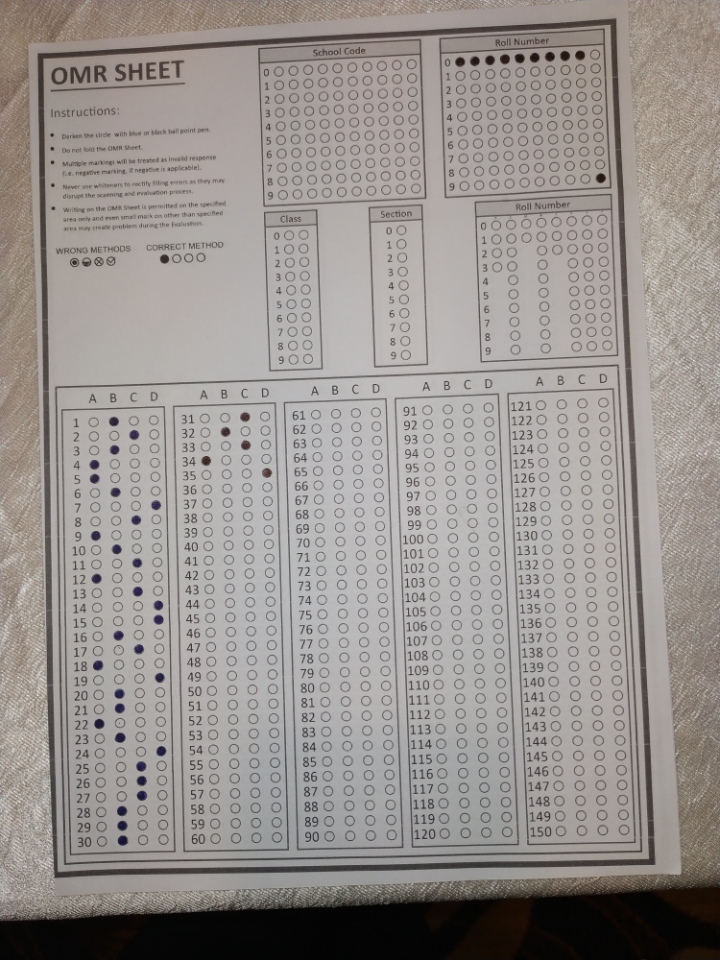 OMR SHEET
Instructions:
• Darken the circle with blue or black ball point pen.
• Do not fold the OMR Sheet.
• Multiple markings will be treated as invalid response
(i.e. negative marking, if negative is applicable).
• Never use whiteners to rectify filling errors as they may
disrupt the scanning and evaluation process.
• Writing on the OMR Sheet is permitted on the specified
area only and even small mark on other than specified
area may create problem during the Evaluation.
WRONG METHODS CORRECT METHOD
School Code
0
1
2
3
4
5
6
7
8
9
Roll Number
0
1
2
3
4
5
6
7
8
9
Class
0
1
2
3
4
5
6
7
8
9
Section
0
1
2
3
4
5
6
7
8
9
Roll Number
0
1
2
3
4
5
6
7
8
9
A B C D
1
2
3
4
5
6
7
8
9
10
11
12
13
14
15
16
17
18
19
20
21
22
23
24
25
26
27
28
29
30
A B C D
31
32
33
34
35
36
37
38
39
40
41
42
43
44
45
46
47
48
49
50
51
52
53
54
55
56
57
58
59
60
A B C D
61
62
63
64
65
66
67
68
69
70
71
72
73
74
75
76
77
78
79
80
81
82
83
84
85
86
87
88
89
90
A B C D
91
92
93
94
95
96
97
98
99
100
101
102
103
104
105
106
107
108
109
110
111
112
113
114
115
116
117
118
119
120
A B C D
121
122
123
124
125
126
127
128
129
130
131
132
133
134
135
136
137
138
139
140
141
142
143
144
145
146
147
148
149
150